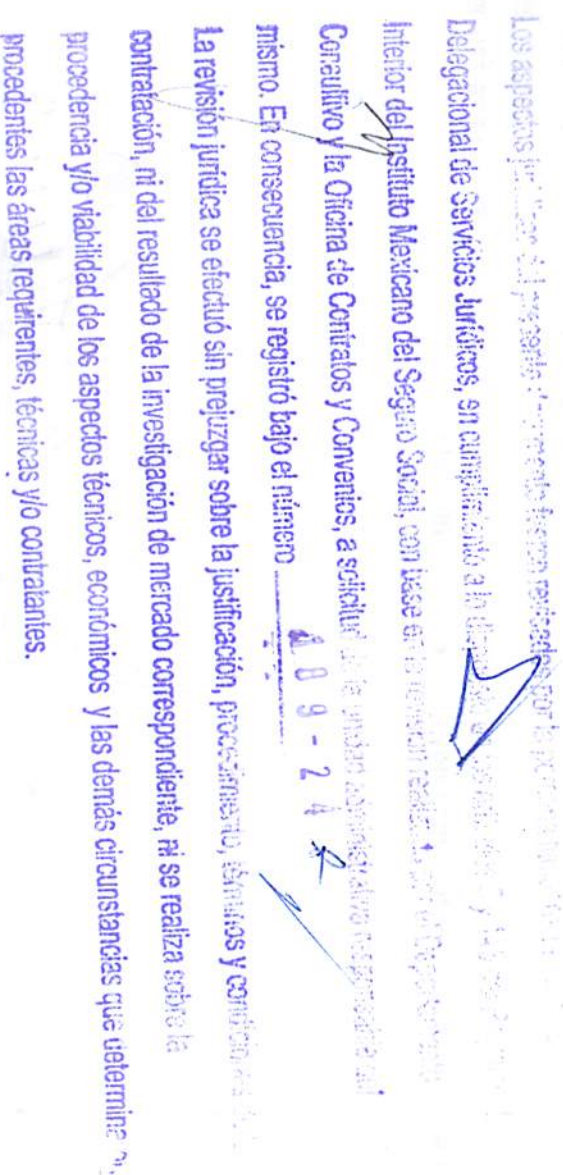 Los aspectos jurídicos del presente documento fueron revisados por la
Delegacional de Servicios Jurídicos, en cumplimiento a lo
Interior del Instituto Mexicano del Seguro Social, con base en la revisión
Consultivo y la Oficina de Contratos y Convenios, a solicitud de la unidad administrativa
mismo. En consecuencia, se registró bajo el número 189-24
La revisión jurídica se efectuó sin prejuzgar sobre la justificación, procedimiento, términos y
contratación, ni del resultado de la investigación de mercado correspondiente, ni se realiza sobre la
procedencia y/o viabilidad de los aspectos técnicos, económicos y las demás circunstancias que
procedentes las áreas requirentes, técnicas y/o contratantes.